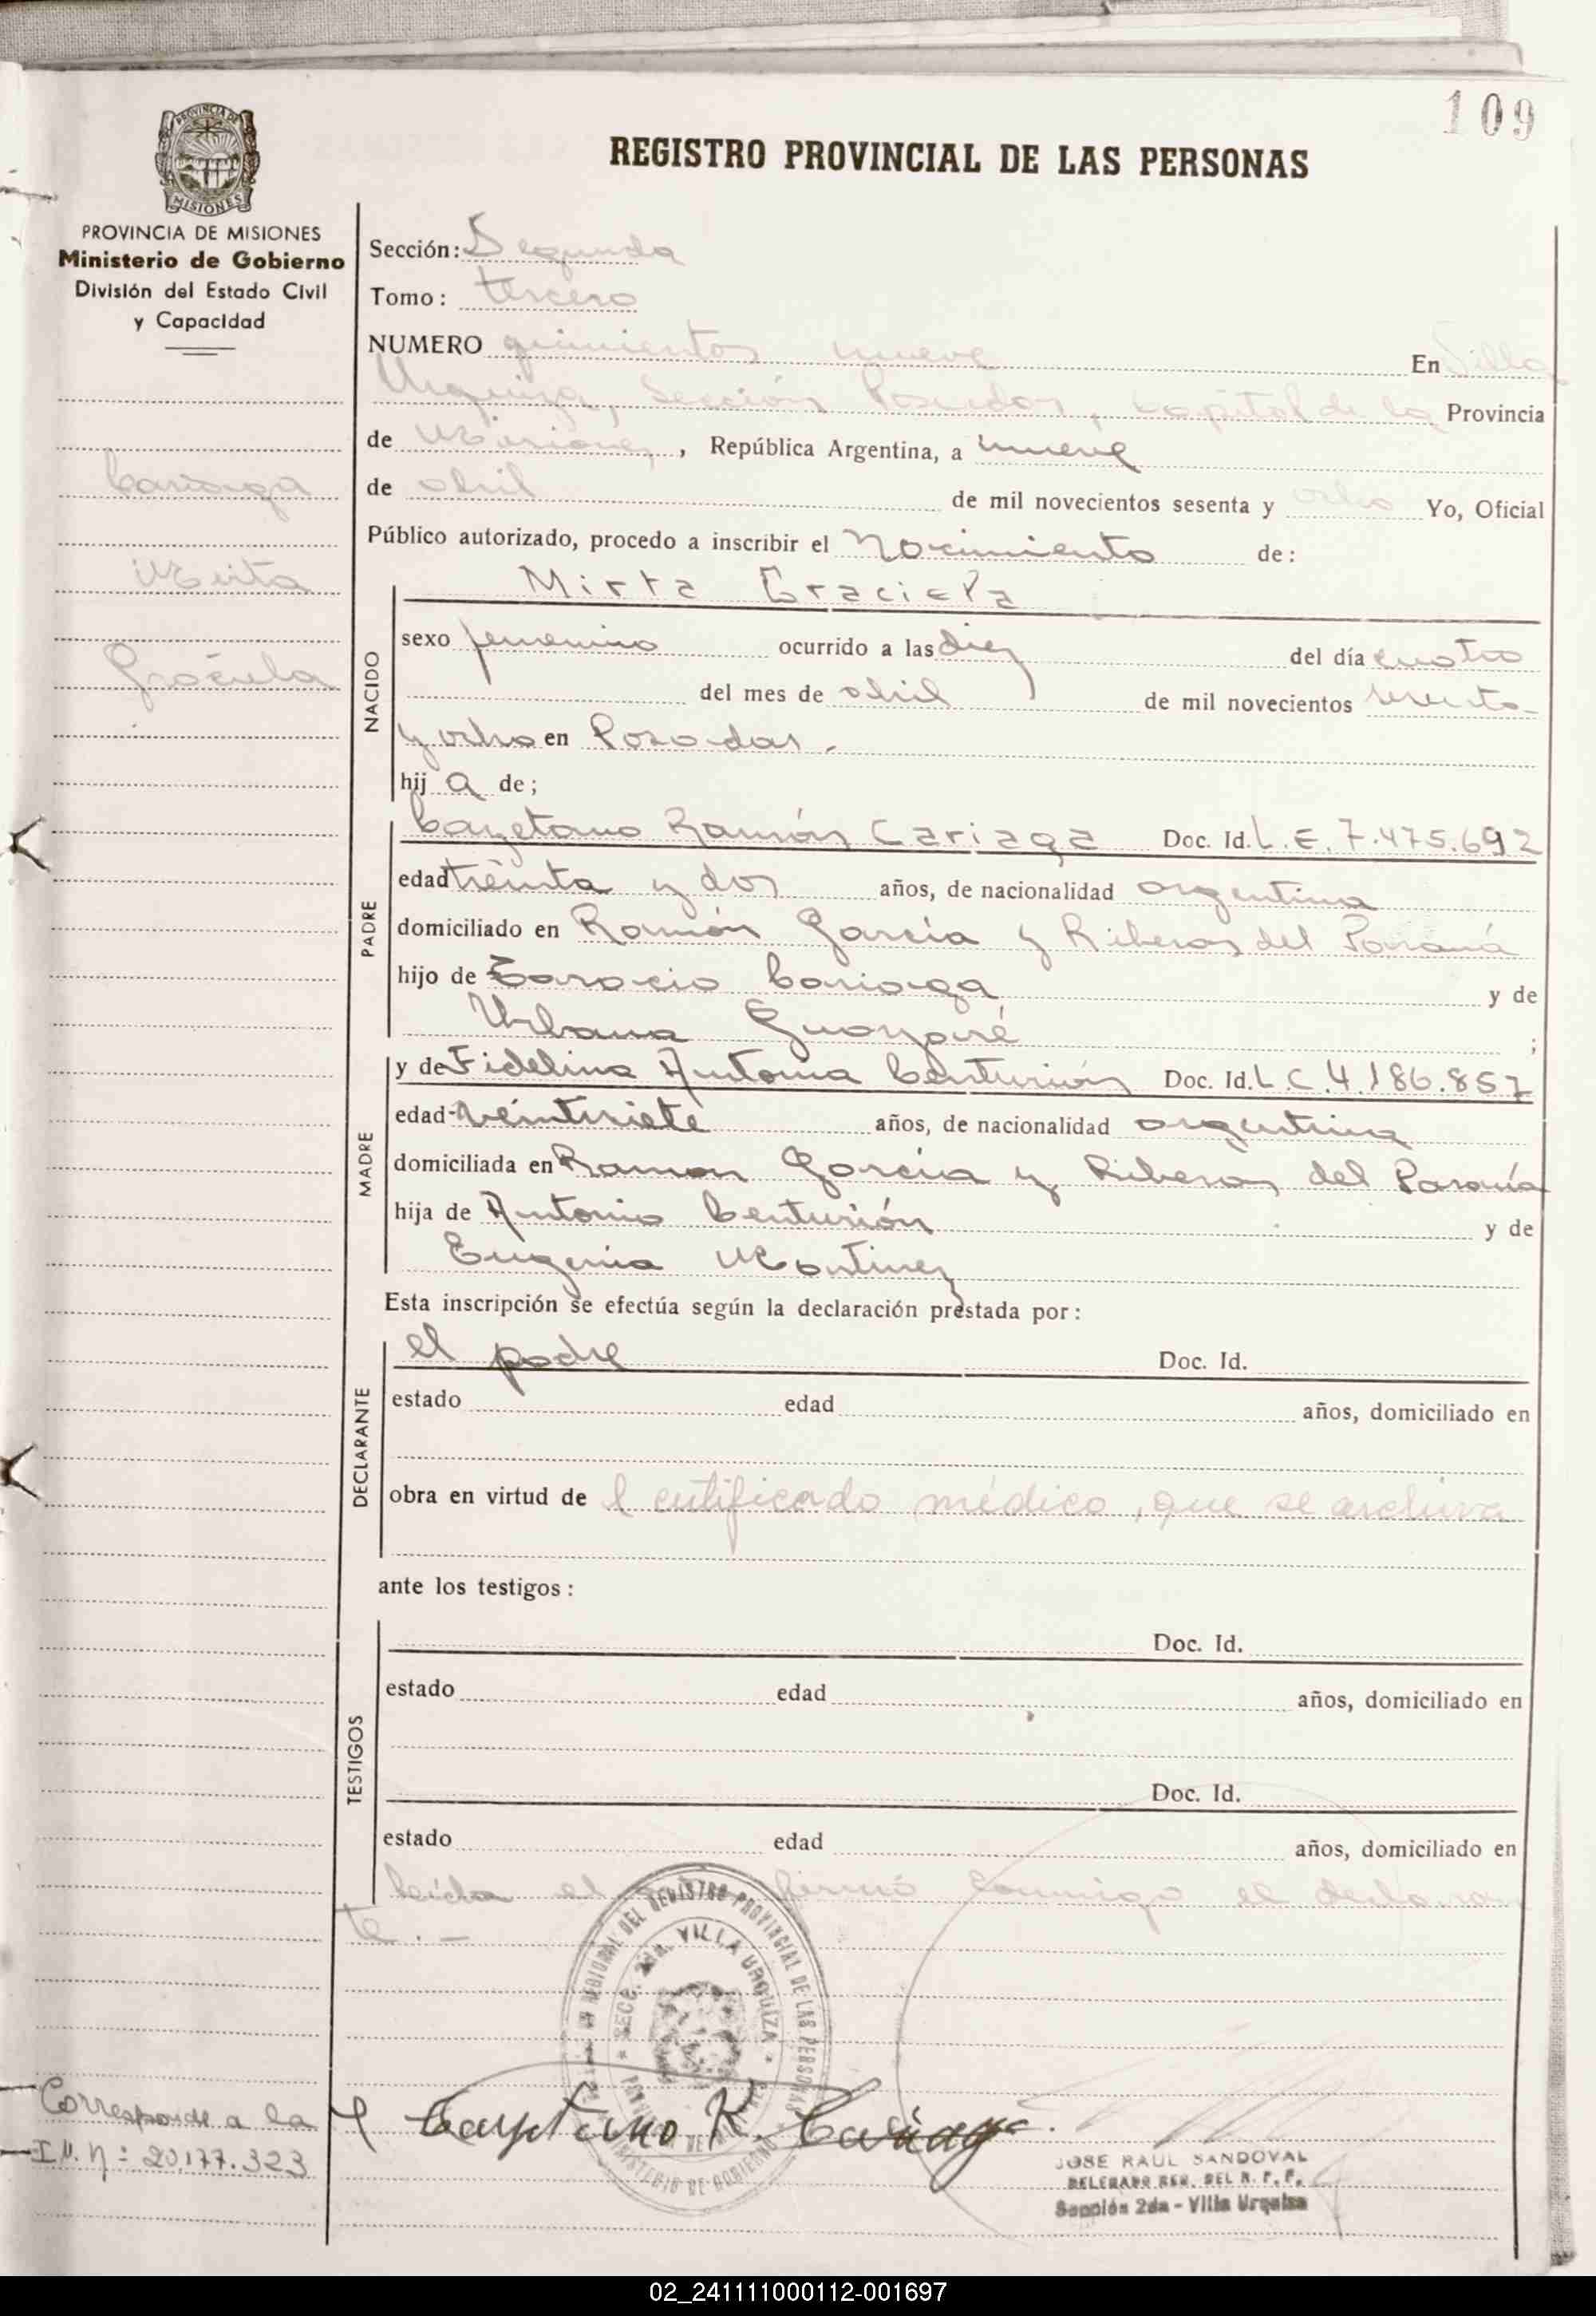 109
REGISTRO PROVINCIAL DE LAS PERSONAS
PROVINCIA DE MISIONES
PROVINCIA DE MISIONES
Ministerio de Gobierno
División del Estado Civil
y Capacidad
Cariaga
Mirta
Graciela
Sección: Segunda
Tomo: tercero
NUMERO quinientos nueve En Villa
Urquiza, Sección Posadas, capital de la Provincia
de Misiones, República Argentina, a nueve
de abril de mil novecientos sesenta y ocho Yo, Oficial
Público autorizado, procedo a inscribir el Nacimiento de:
NACIDO
Mirta Graciela
sexo femenino ocurrido a las diez del día cuatro
del mes de abril de mil novecientos sesenta
y ocho en Posadas.
hij a de;
PADRE
Cayetano Ramón Cariaga Doc. Id. L.E. 7.475.692
edad treinta y dos años, de nacionalidad argentina
domiciliado en Ramón García y Riberas del Paraná
hijo de Cariaga y de
Urbana Guayaré ;
MADRE
y de Fidelina Antonia Centurión Doc. Id. L C 4.186.857
edad veintisiete años, de nacionalidad argentina
domiciliada en Ramon García y Riberas del Paraná
hija de Antonio Centurión y de
Eugenia Martinez
Esta inscripción se efectúa según la declaración prestada por:
DECLARANTE
el padre Doc. Id.
estado edad años, domiciliado en
obra en virtud de l certificado médico, que se archiva
ante los testigos:
TESTIGOS
Doc. Id.
estado edad años, domiciliado en
Doc. Id.
estado edad años, domiciliado en
Leida el firmó conmigo el declaran
te.-
REGIONAL DEL REGISTRO PROVINCIAL DE LAS PERSONAS
SECC. 2da. VILLA URQUIZA
MINISTERIO DE GOBIERNO
Cayetano R. Cariaga
Corresponde a la
I M. N: 20.177.323
JOSE RAUL SANDOVAL
DELEGADO REG. DEL R. P. P.
Sección 2da - Villa Urquiza
02_241111000112-001697